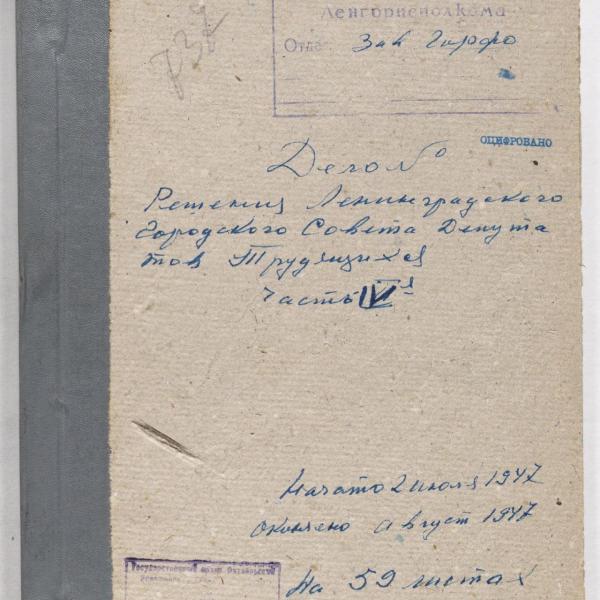 Ленгорисполкома
Отдел
ОЦИФРОВАНО
Дело №
Решения Ленинградского
Городского Совета Депута
тов Трудящихся
Часть IV я
Начато 2 июля 1947
окончено август 1947
Государственный архив Октябрьской
На 59 листах